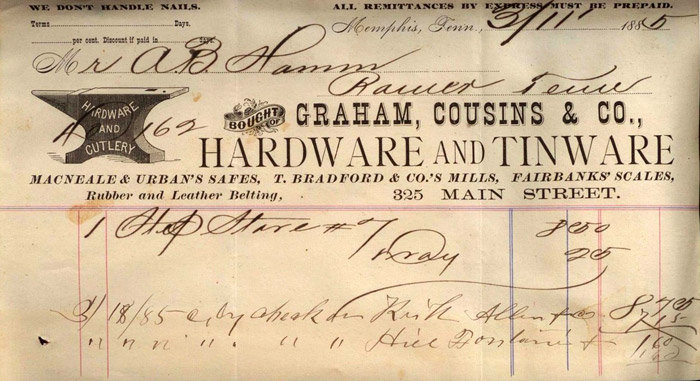 WE DON'T HANDLE NAILS. ALL REMITTANCES BY EXPRESS MUST BE PREPAID.
Terms Days.
per cent. Discount if paid in days.
Memphis, Tenn., 3/11 1885
Mr A.B. Hamm
Ramer Tenn
HARDWARE AND CUTLERY
No 162
BOUGHT OF
GRAHAM, COUSINS & CO.,
HARDWARE AND TINWARE
MACNEALE & URBAN'S SAFES, T. BRADFORD & CO.'S MILLS, FAIRBANKS' SCALES,
Rubber and Leather Belting, 325 MAIN STREET.
1 Stove #7 8 50
Dray 25
3/18/85 city check on Kirk Allen & Co 8 75
" " " " " " Hill Fontaine &